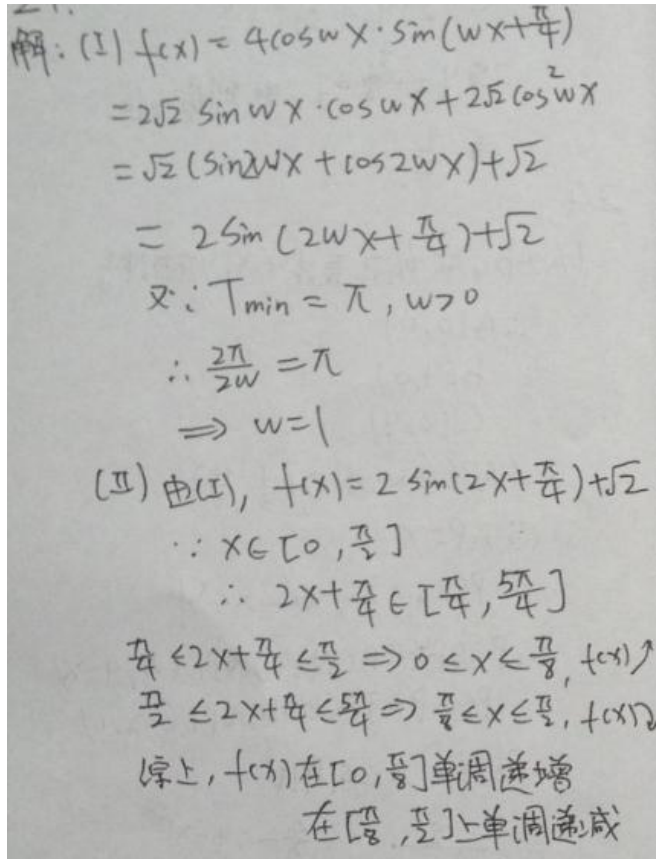 解：(I) f(x) = 4coswx·sin(wx+π/4)
=2√2 sinwx·coswx+2√2cos²wx
=√2(sin2wx+cos2wx)+√2
= 2sin(2wx+π/4)+√2
又∵Tmin = π, w>0
∴ 2π/2w = π
⇒ w=1
(II) 由(I), f(x)=2sin(2x+π/4)+√2
∵ x∈[0, π/2]
∴ 2x+π/4∈[π/4, 5π/4]
π/4≤2x+π/4≤π/2 ⇒ 0≤x≤π/8, f(x)↗
π/2≤2x+π/4≤5π/4⇒ π/8≤x≤π/2, f(x)↘
综上, f(x)在[0, π/8]单调递增
在[π/8, π/2]上单调递减